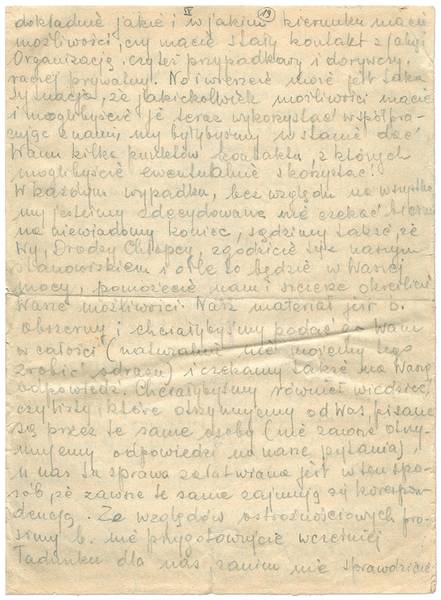 IV (19)
dokładnie jakie i w jakim kierunku macie
możliwości, czy macie stały kontakt z jakąś
Organizacją, czy też przypadkowy i dorywczy,
raczej prywatny. No i wreszcie może jest taka
sytuacja, że jakiekolwiek możliwości macie
i moglibyście je teraz wykorzystać współpra-
cując z nami, my byłybyśmy w stanie dać
Wam kilka punktów kontaktu, z których
moglibyście ewentualnie skorzystać!
W każdym wypadku, bez względu na wszystko
my jesteśmy zdecydowane nie czekać biernie
na niewiadomy koniec, sądzimy także, że
Wy, Drodzy Chłopcy, zgodzicie się z naszym
stanowiskiem i o ile to będzie w Waszej
mocy, pomożecie nam i szczerze określicie
Wasze możliwości. Nasz materiał jest b.
obszerny i chciałybyśmy podać go Wam
w całości (naturalnie nie możemy tego
zrobić odrazu) i czekamy także na Waszą
odpowiedź. Chciałybyśmy również wiedzieć,
czy listy, które otrzymujemy od Was pisane
są przez te same osoby (nie zawsze otrzy-
mujemy odpowiedzi na nasze pytania),
u nas ta sprawa załatwiana jest w ten spo-
sób, że zawsze te same zajmują się korespon-
dencją. Ze względów ostrożnościowych pro-
simy b. nie przygotowujcie wcześniej
ładunku dla nas zanim nie sprawdzicie